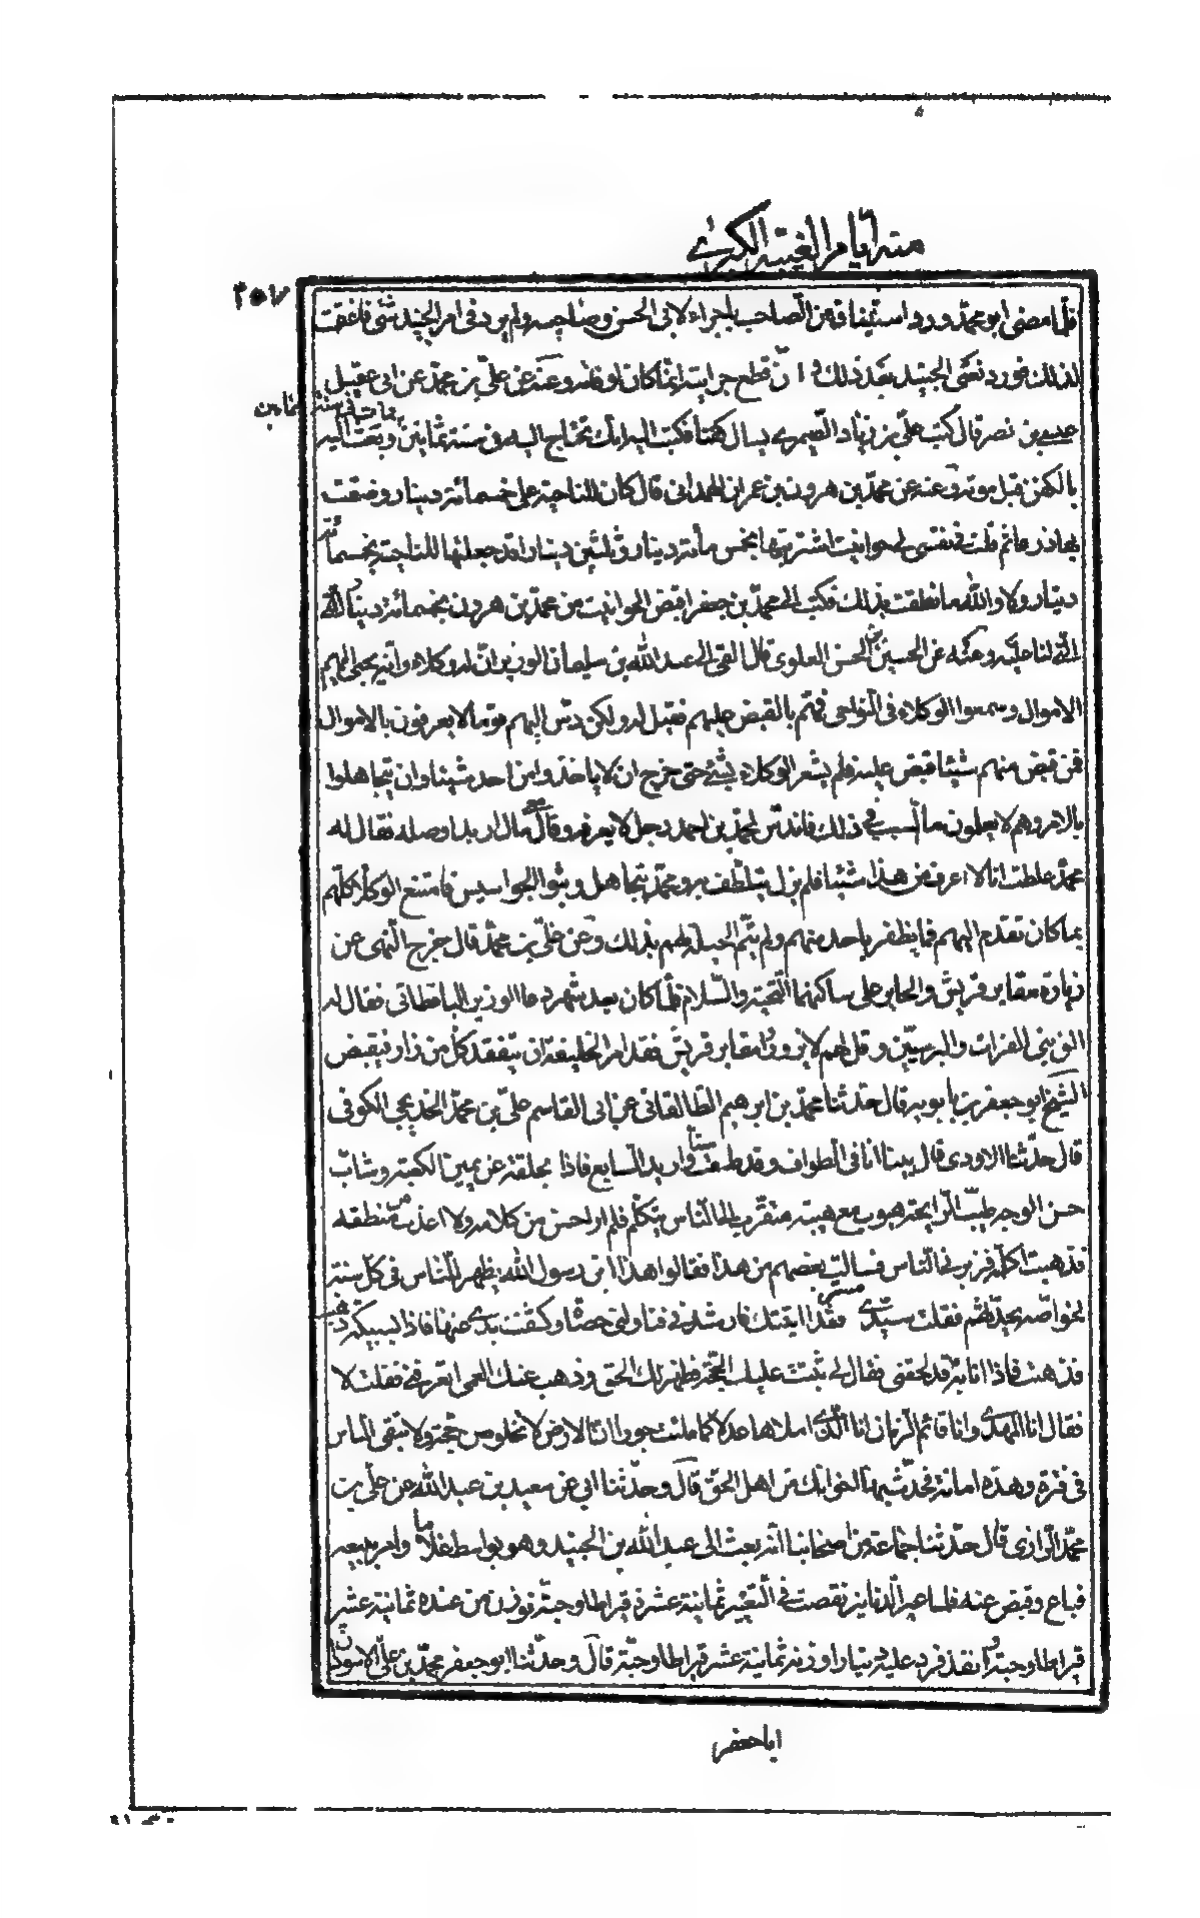 منه ايام الغيبة الكبرى
فلما مضى ابو محمد ورد استيناف من الصاحب باجراء لابى الحسن وصاحبه ولم يرد فى امر الجنيد شئ فاغتممت
لذلك فورد نعى الجنيد بعد ذلك و ان قطع جرايته انما كان لوفاته وعنه عن على بن محمد عن ابى عقيل
عيسى بن نصر قال كتب على بن زياد الصيمرى يسال كفنا فكتب اليه انك تحتاج اليه فى سنة ثمانين وبعث اليه
مات فى سنة ثمانين
بالكفن قبل موته وعنه عن محمد بن هرون بن عمران الهمدانى قال كان للناحية على خمسمائة دينار وضقت
بها ذرعا ثم قلت فى نفسى لى حوانيت اشتريتها بخمس مائة دينار وثلثين دينارا قد جعلتها للناحية بخمسمائة
دينار ولا والله ما نطقت بذلك فكتب الى محمد بن جعفر اقبض الحوانيت من محمد بن هرون بخمسمائة دينار التى
لنا عليه وعنه عن الحسين بن الحسن العلوى قال القى الى عبد الله بن سليمان الوزير ان له وكلاء وانه يجبى اليهم
الاموال وسموا الوكلاء فى النواحى فهم بالقبض عليهم فقيل له ولكن دس اليهم قوما لا يعرفون بالاموال
فمن قبض منهم شيئا قبض عليه فلم يشعر الوكلاء بشئ حتى خرج ان لا ياخذوا من احد شيئا وان يتجاهلوا
بالامر وهم لا يعلمون ما السبب فى ذلك فاندس لمحمد بن احمد رجل لا يعرفه وقال معى مال اريد اوصله فقال له
محمد غلطت انا لا اعرف من هذا شيئا فلم يزل يتلطف به ومحمد يتجاهل وبثوا الجواسيس فامتنع الوكلاء كلهم
بما كان تقدم اليهم فما يظفر باحد منهم ولم يتم الحيلة لهم بذلك وعن على بن محمد قال خرج النهى عن
زيارة مقابر قريش والحاير على ساكنهما التحية والسلام فلما كان بعد شهر دعا الوزير الباقطانى فقال له
الق بنى الفرات والبرسيين وقل لهم لا يزوروا مقابر قريش فقد امر الخليفة ان يتفقد كل من زار فيقبض
الشيخ ابو جعفر بن بابويه قال حدثنا محمد بن ابرهيم الطالقانى عن ابى القاسم على بن محمد الخديجى الكوفى
قال حدثنا الاودى قال بينا انا فى الطواف وقد طفت ستا واريد السابع فاذا بحلقة عن يمين الكعبة وشاب
حسن الوجه طيب الرايحة هيوب مع هيبته متقرب الى الناس يتكلم فلم ار احسن من كلامه ولا اعذب من منطقه
فذهبت اكلمه فزبرنى الناس فسالت بعضهم من هذا فقالوا هذا ابن رسول الله يظهر للناس فى كل سنة
لخواصه يحدثهم فقلت سيدى مسترشدا ايتتك فارشدنى فناولنى حصاة وكشفت يدى عنها فاذا بسبيكة ذهب
فذهبت فاذا انا به قد لحقنى فقال لى ثبتت عليك الحجة وظهر لك الحق وذهب عنك العمى اتعرفنى فقلت لا
فقال انا المهدى وانا قائم الزمان انا الذى املاها عدلا كما ملئت جورا ان الارض لا تخلو من حجة ولا تبقى الناس
فى فترة وهذه امانة فحدث بها اخوانك من اهل الحق قال وحدثنا ابى عن سعيد بن عبد الله عن على بن
محمد الرازى قال حدثنا جماعة من اصحابنا انه بعث الى عبد الله بن الجنيد وهو بواسط غلاما وامر ببيعه
فباع وقبض عنه فلما عير الدنانير نقصت فى التعيير ثمانية عشر قيراطا وحبة فوزن من عنده ثمانية عشر
قيراطا وحبة وانفذ فرد عليه دينارا وزنه ثمانية عشر قيراطا وحبة قال وحدثنا ابو جعفر محمد بن على الاسود ان
اباجعفر